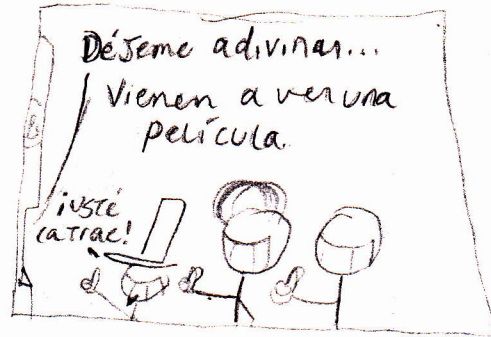 Déjeme adivinar...
Vienen a ver una
película.
¡USTÉ
LA TRAE!